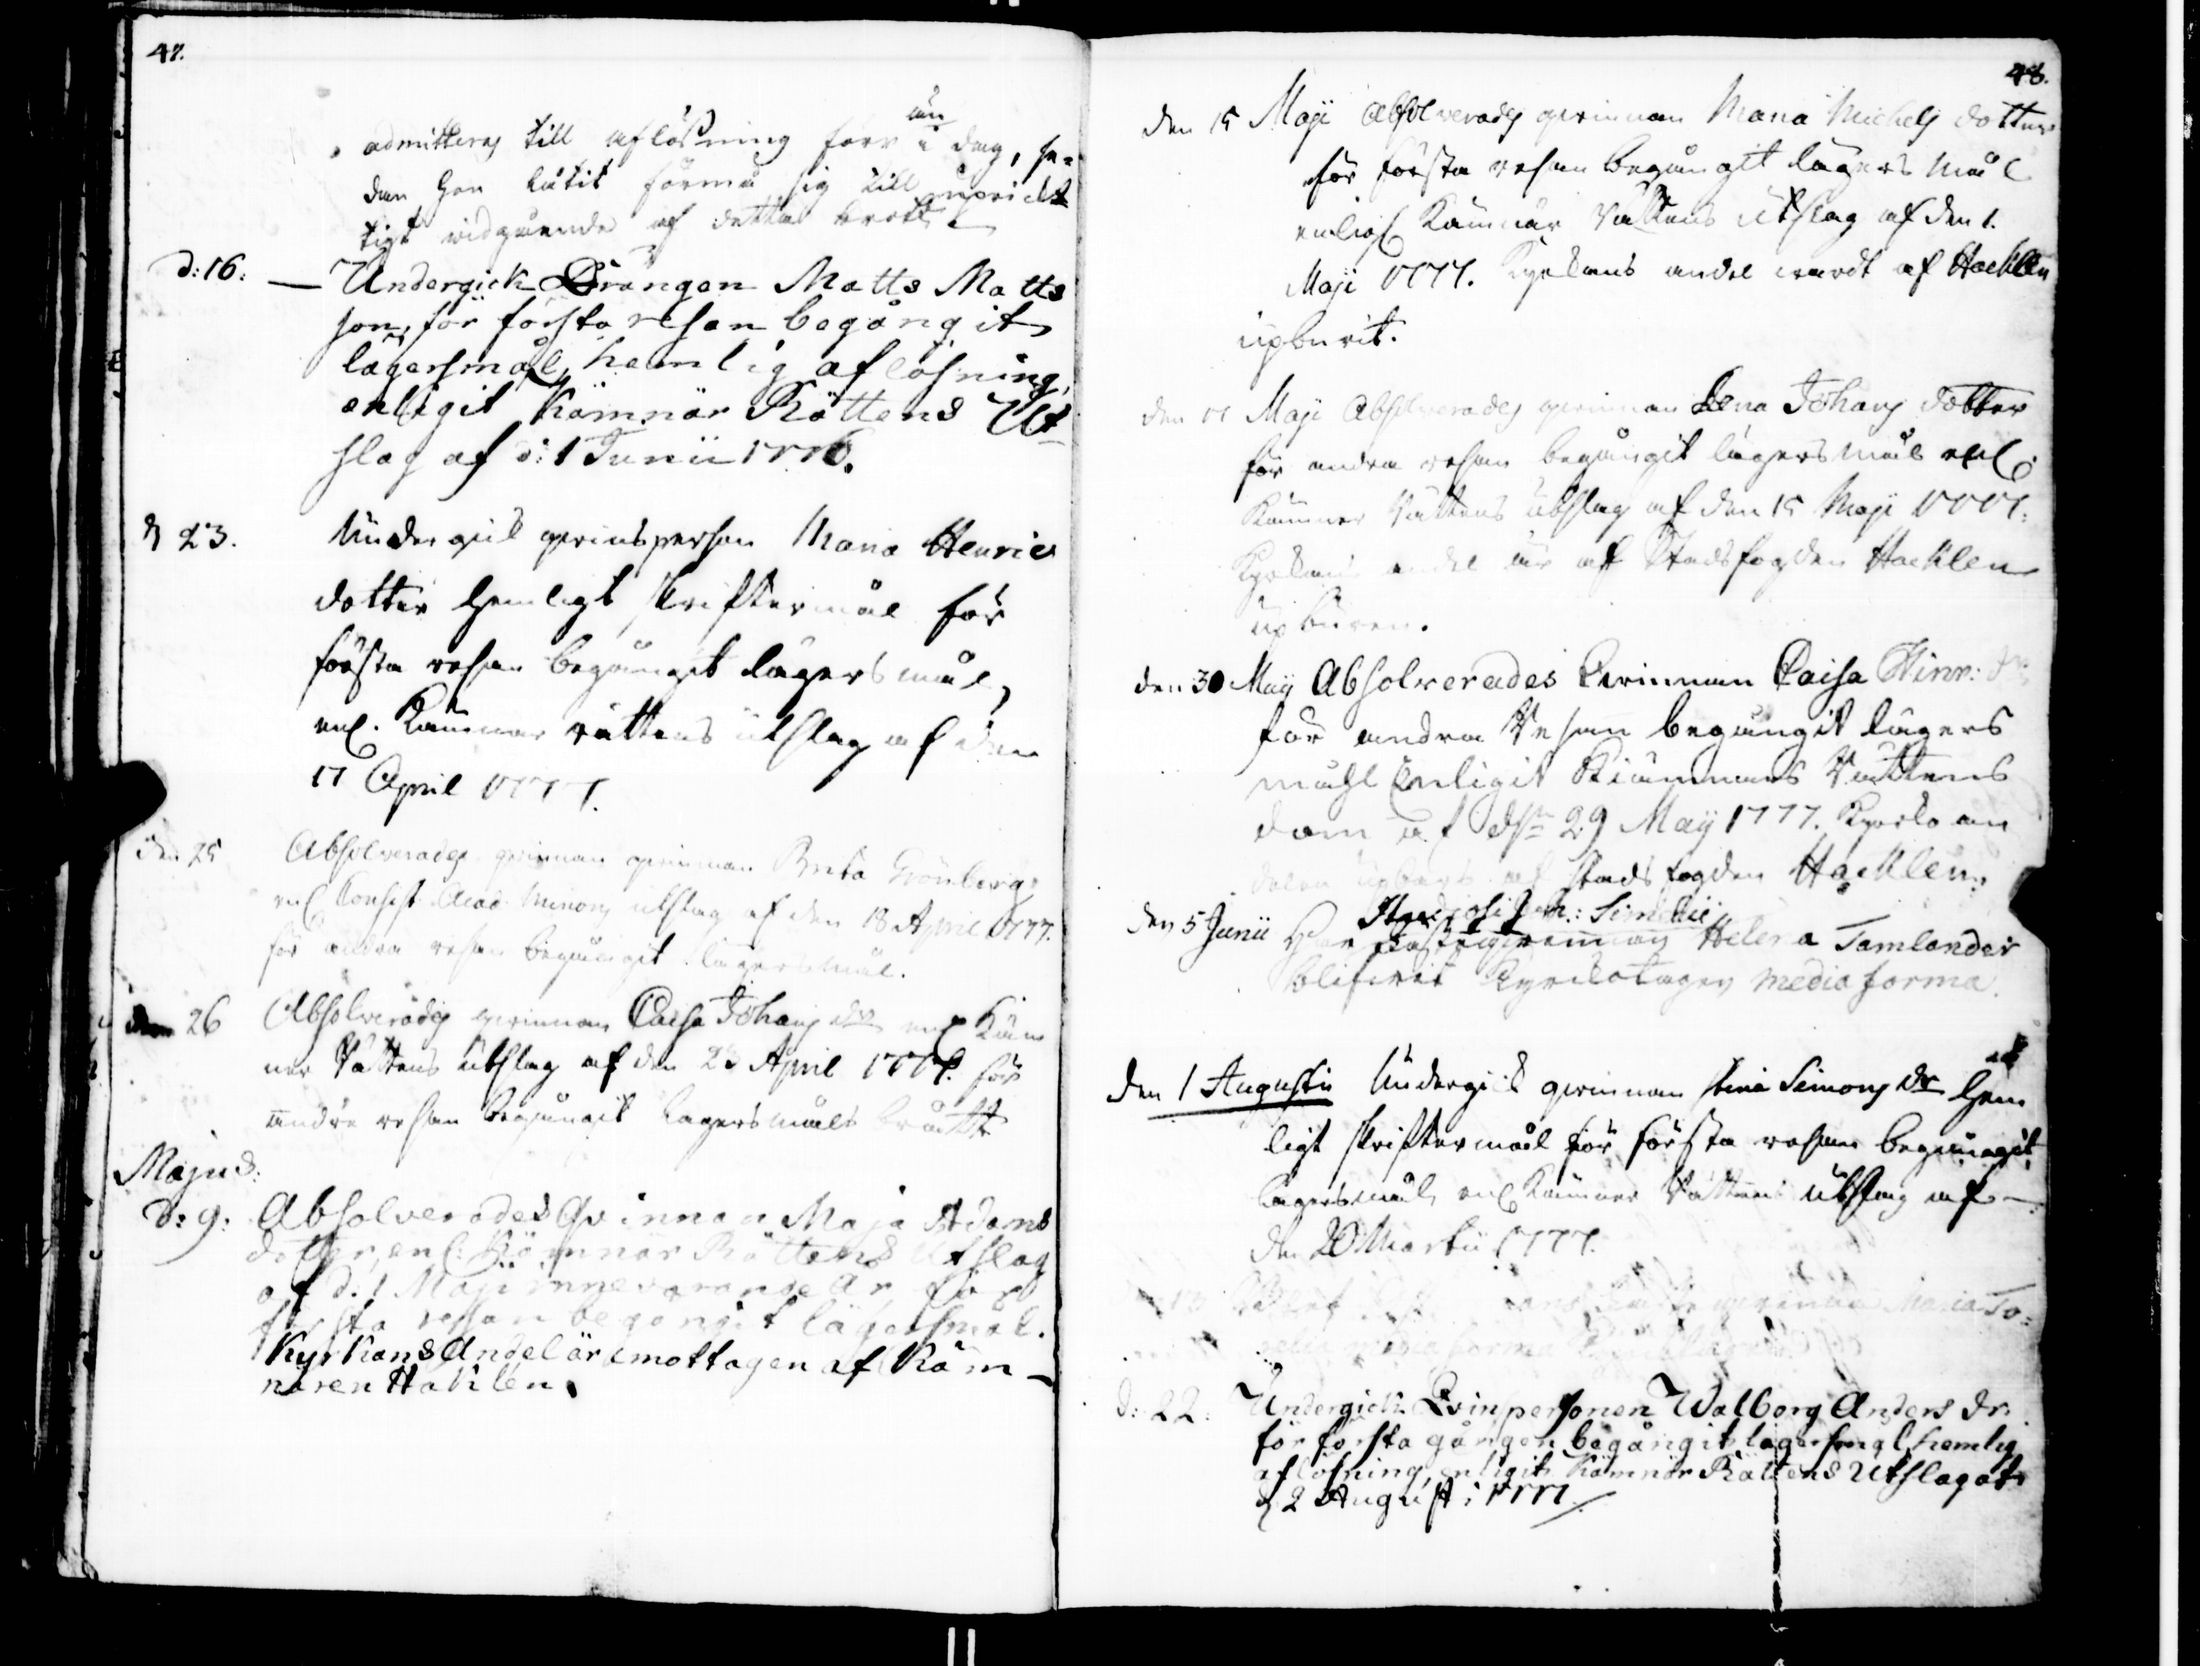 47.
admitteras till aflösning förr än i dag, se-
dan hon låtit förmå sig till upricht
tigt vidgående af detta brott.
d: 16: — Undergick Drängen Matts Matts
son, för första resan begångit
lägersmål, hemlig aflösning,
enligit Kämnär Rättens Ut-
slag af d: 1 Junii 1776.
d 23. Undergik qvinsperson Maria Henrics
dotter hemligt skriftermål för
första resan begångit lägersmål,
enl. Kämnär rättens utslag af den
17 April 1777.
den 25 Absolverades qvinnan qvinnan Brita Grönberg
enl Consist. Acad. Minoris utslag af den 18 April 1777.
för andra resan begångit lägersmål.
den 26 Absolverades qvinnan Caisa Johans dr enl Käm
ner Rättens utslag af den 23 April 1777. för
andra resan begångit lägersmåls brått
Majus:
d: 9: Absolverades Qvinnan Maja Adams
dotter, enl: Kämnär Rättens Utslag
af d. 1 Maji innevarande år för
första resan begångit lägersmål.
Kyrkans Andel är emottagen af Käm-
nären Hahlen.
48.
den 15 Maji Absolverades qvinnan Maria Michels dotter
för första resan begångit lägersmål
enligt Kämnär Rättens utslag af den 1.
Maji 1777. Kyrkans andel wardt af Hacklen
upburit.
den Maji Absolverades qvinnan Lena Johans dotter
för andra resan begångit lägersmål enl.
Kämner Rättens utslag af den 15 Maji 1777.
Kyrkans andel är af Stadsfogden Hacklen
upburen.
den 30 Maij Absolverades Qvinnan Caisa Hinr: dr
för andra Resan begångit lägers
måhl Enligit Kiämners Rättens
dom af dn 29 Maij 1777. Kyrko an
delen upbars af stads fogden Hacklen.
den 5 Junii Har Simelii Helena Tamlander
blifvit Kyrkotagen media forma.
den 1 Augusti Undergick qvinnan Stina Simons dr hem
ligt skriftermål för första resan begångit
lägersmål, enl Kämner Rättens utslag af
den 20 Martii 1777.
13 qvinnan Maria To-
media forma
d: 22: Undergick Qvinpersonen Walborg Anders dr.
för första gången begångit lägersmål, hemlig
aflösning, enligit Kämnär Rättens Utslag af
d 2 August: 1777.